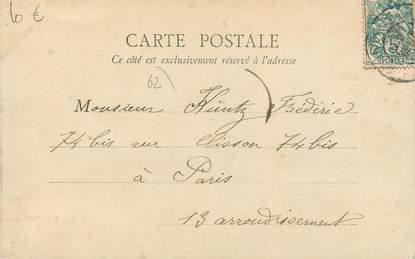 6 €
CARTE POSTALE
Ce côté est exclusivement réservé à l'adresse
62
Monsieur Küntz Frédéric
74 bis rue Clisson 74 bis
à Paris
13 arroudissement